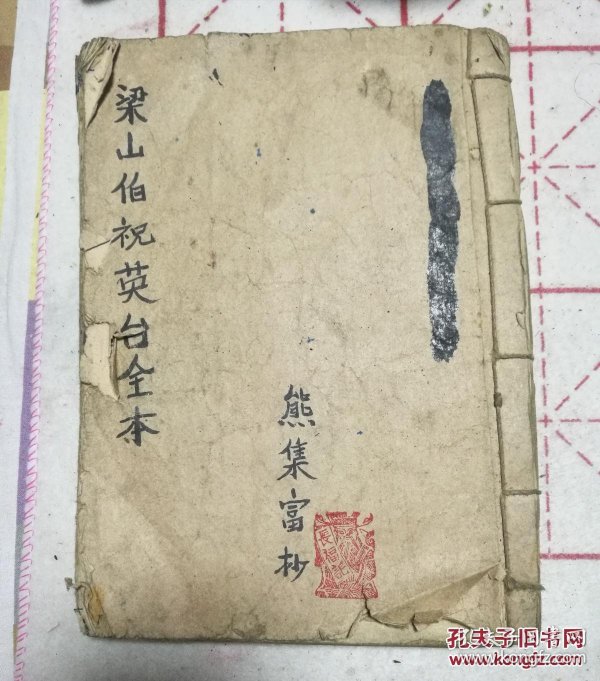 梁山伯祝英台全本
熊集富抄
孔夫子旧书网
www.kongfz.com